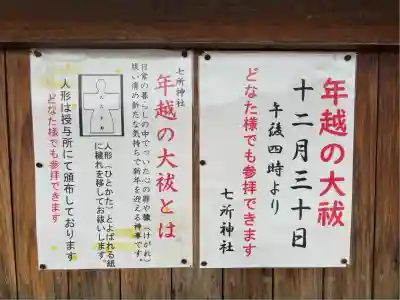 年越の大祓
十二月三十日
午後四時より
どなた様でも参拝できます
七所神社
七所神社
年越の大祓とは
日常の暮らしの中でついた心の罪や穢(けがれ)
祓い清め新たな気持ちで新年を迎える神事です。
人形(ひとかた)とよばれる紙
に穢れを移してお祓いします。
人形は授与所にて頒布しております
どなた様でも参拝できます